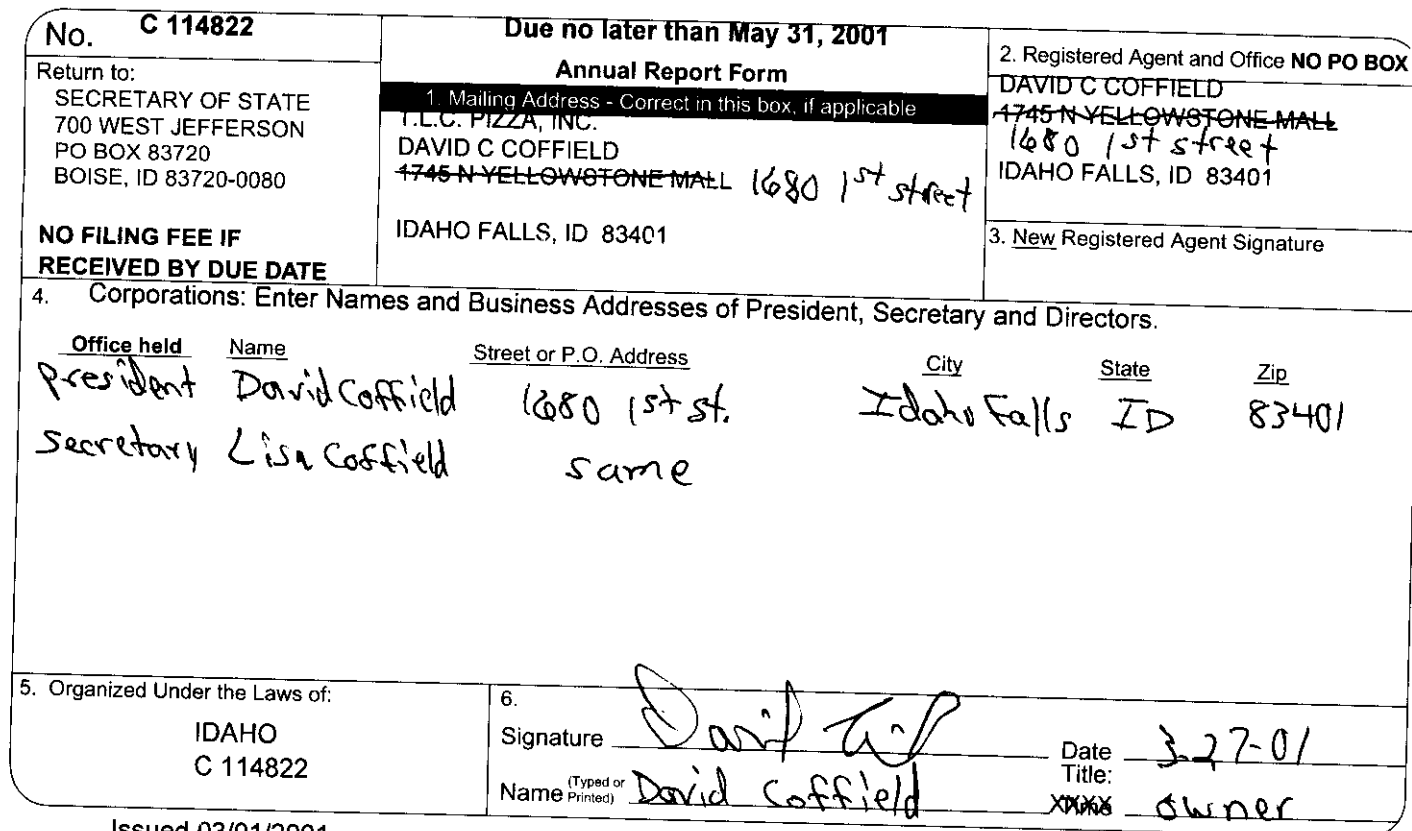 No. C 114822
Return to:
SECRETARY OF STATE
700 WEST JEFFERSON
PO BOX 83720
BOISE, ID 83720-0080
NO FILING FEE IF
RECEIVED BY DUE DATE
Due no later than May 31, 2001
Annual Report Form
1. Mailing Address - Correct in this box, if applicable
T.L.C. PIZZA, INC.
DAVID C COFFIELD
1745 N YELLOWSTONE MALL 1680 1st street
IDAHO FALLS, ID 83401
2. Registered Agent and Office NO PO BOX
DAVID C COFFIELD
1745 N YELLOWSTONE MALL
1680 1st street
IDAHO FALLS, ID 83401
3. New Registered Agent Signature
4. Corporations: Enter Names and Business Addresses of President, Secretary and Directors.
Office held Name Street or P.O. Address City State Zip
president David Coffield 1680 1st st. Idaho Falls ID 83401
secretary Lisa Coffield same
5. Organized Under the Laws of:
IDAHO
C 114822
6.
Signature David Date 3-27-01
Name (Typed or Printed) David Coffield Title: owner
Issued 03/01/2001